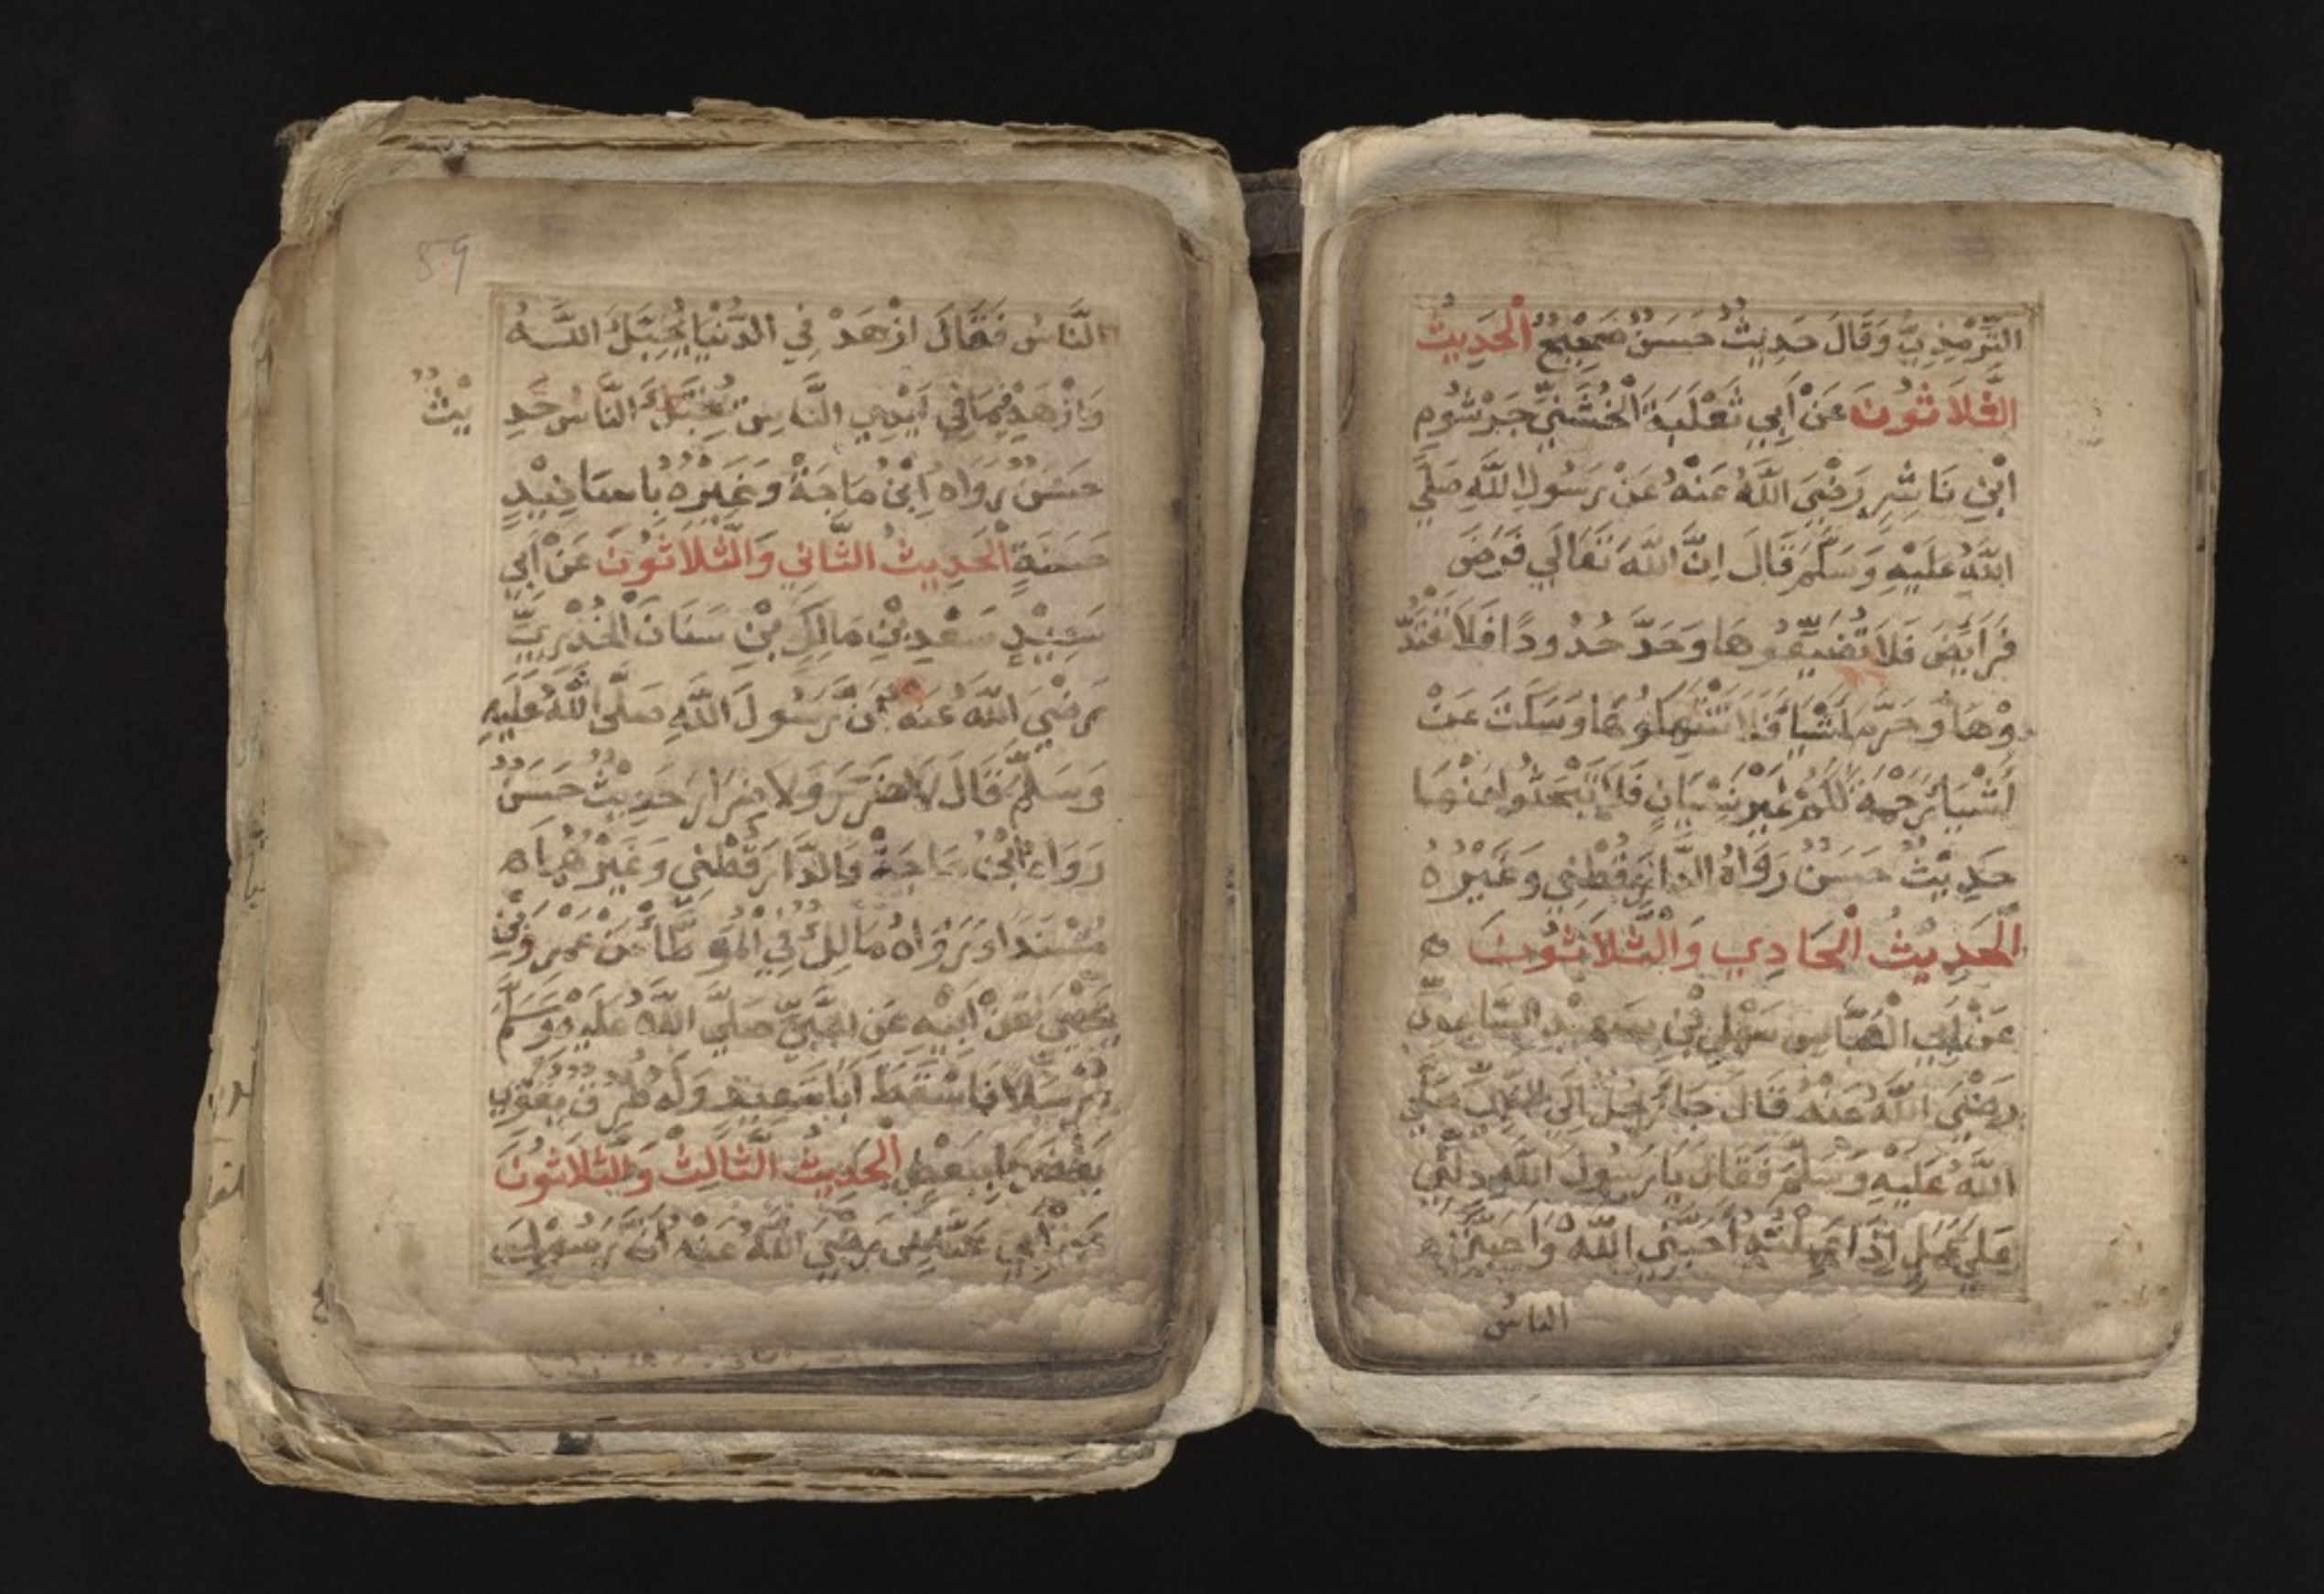 التِّرْمِذِيُّ وَقَالَ حَدِيثٌ حَسَنٌ صَحِيْحٌ اَلْحَدِيثُ
الثَّلَاثُونَ عَنْ أَبِي ثَعْلَبَةَ الْخُشَنِيِّ جَرْثُومِ
ابْنِ نَاشِرٍ رَضْيَ اللَّهُ عَنْهُ عَنْ رَسُولِ اللَّهِ صَلَّي
اللَّهُ عَلَيْهِ وَسَلَّمَ قَالَ اِنَّ اللَّهَ تَعَالَي فَرَضَ
فَرَايِضَ فَلَا تُضَيِّعُوهَا وَحَدَّ حُدُودًا فَلَا تَحْتَدُّ
وْهَا وَحَرَّمَ اَشْيَا فَلَا تَنْتَهِكُوهَا وَسَكَتَ عَنْ
اَشْيَا رَحْمَةً لَكُمْ غَيْرَ نِسْيَانٍ فَلَا تَبْحَثُوا عَنْهَا
حَدِيْثٌ حَسَنٌ رَوَاهُ الدَّارَقُطْنِي وَغَيْرُهُ
اَلْحَدِيْثُ الْحَادِي وَالثَّلَاثُونَ ه
عَنْ أَبِي الْعَبَّاسِ سَهْلِ بْنِ سَعْدٍ السَّاعِدِيِّ
رَضْيَ اللَّهُ عَنْهُ قَالَ جَا رَجُلٌ اِلَي النَّبِيِّ صَلَّي
اللَّهُ عَلَيْهِ وَسَلَّمَ فَقَالَ يَا رَسُولَ اللَّهِ دُلَّنِي
عَلَي عَمَلٍ اِذَا عَمِلْتُهُ اَحَبَّنِي اللَّهُ وَاَحَبَّنِي ه
الناسُ
59
النَّاسُ فَقَالَ ازْهَدْ فِي الدُّنْيَا يُحِبَّكَ اللَّهُ
وَازْهَدْ فِيمَا فِي اَيْدِي النَّاسِ يُحِبَّكَ النَّاسُ حَدِ يْثٌ
حَسَنٌ رَوَاهُ اِبْنُ مَاجَةْ وَغَيْرُهُ بِاَسَانِيْدٍ
حَسَنَةٍ اَلْحَدِيثُ الثَّانِي وَالثَّلَاثُونَ عَنْ أَبِي
سَعِيْدٍ سَعْدِ بْنِ مَالِكِ بْنِ سَنَانَ الْخُدْرِيِّ
رَضْيَ اللَّهُ عَنْهُ اَنَّ رَسُولَ اللَّهِ صَلَّى اللَّهُ عَلَيْهِ
وَسَلَّمَ قَالَ لَا ضَرَرَ وَلَا ضِرَارَ حَدِيْثٌ حَسَنٌ
رَوَاهُ ابْنُ مَاجَةْ وَالدَّارَقُطْنِي وَغَيْرُهُمَا ه
مُسْنَدًا وَرَوَاهُ مَالِكٌ فِي الْمُوَطَّأْ عَنْ عَمْرِو بْنِ
يَحْيَى عَنْ اَبِيْهِ عَنِ النَّبِيِّ صَلَّي اللَّهُ عَلَيْهِ وَسَلَّمَ
مُرْسَلًا فَاَسْقَطَ اَبَا سَعِيْدٍ وَلَهُ طُرُقٌ يَقْوِي
بَعْضُهَا بِبَعْضٍ اَلْحَدِيثُ الثَّالِثْ وَالثَّلَاثُونَ
عَنْ رَضْيَ اللَّهُ عَنْهُ اَنَّ رَسُولَ